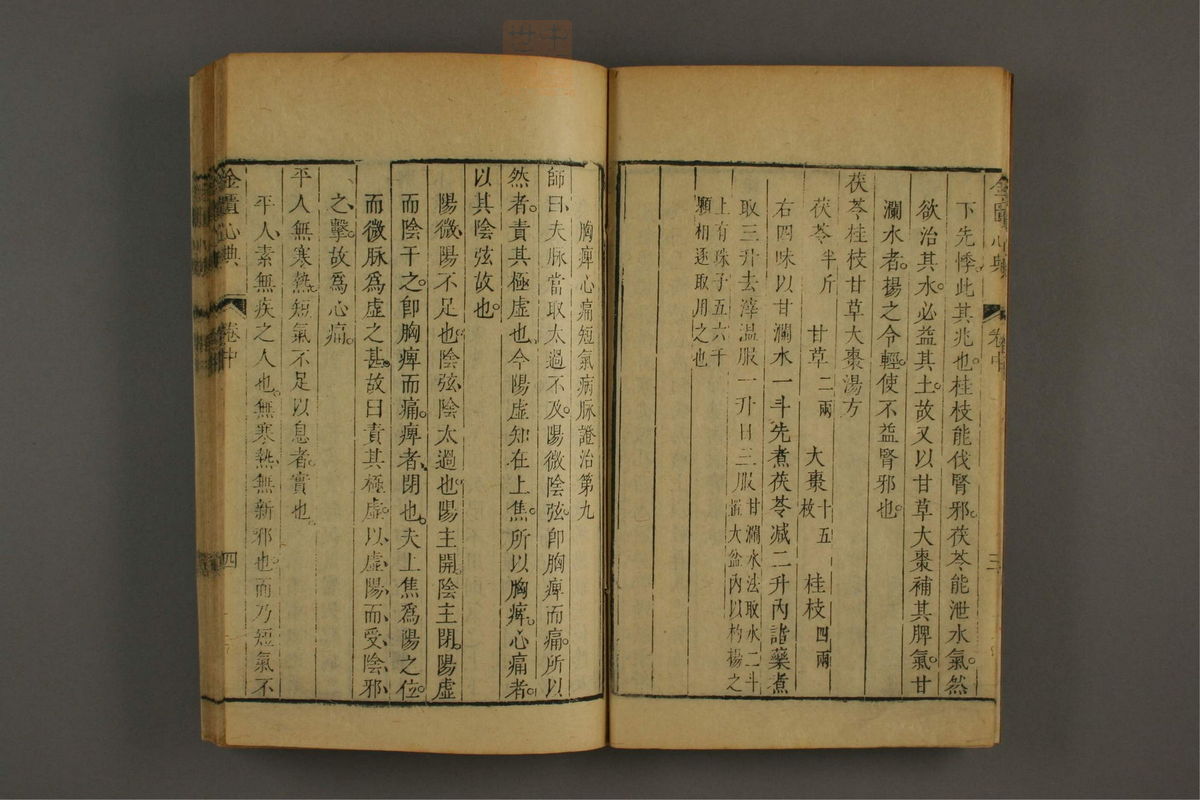 金匱心典
卷中
三
下先悸此其兆也桂枝能伐腎邪茯苓能泄水氣然
欲治其水必益其土故又以甘草大棗補其脾氣甘
瀾水者揚之令輕使不益腎邪也
茯苓桂枝甘草大棗湯方
茯苓半斤 甘草二兩 大棗十五枚 桂枝四兩
右四味以甘瀾水一斗先煮茯苓减二升內諸藥煮
取三升去滓溫服一升日三服甘瀾水法取水二斗
置大盆內以杓揚之
上有珠子五六千
顆相逐取用之也
胸痺心痛短氣病脉證治第九
師曰夫脉當取太過不及陽微陰弦卽胸痺而痛所以
然者責其極虛也今陽虛知在上焦所以胸痺心痛者
以其陰弦故也
陽微陽不足也陰弦陰太過也陽主開陰主閉陽虛
而陰干之卽胸痺而痛痺者閉也夫上焦爲陽之位
而微脉爲虛之甚故曰責其極虛以虛陽而受陰邪
之擊故爲心痛
平人無寒熱短氣不足以息者實也
平人素無疾之人也無寒熱無新邪也而乃短氣不
金匱心典
卷中
四